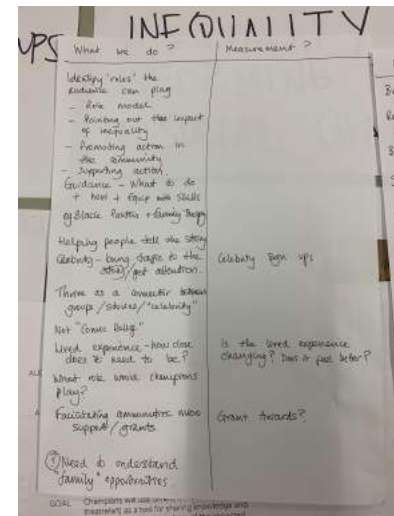 UPS
INEQUALITY
What we do?
Measurement?
Identify 'roles' the
audience can play
- Role model
- Pointing out the impact
of inequality
- Promoting action in
the community
- Supporting action
Guidance - What to do
+ how + Equip with Skills
eg Black Panther + Family Therapy
Helping people tell the story
Celebrity - bring people to the
story/get attention.
Celebrity sign ups
Thrive as a connector between
groups/stories/"celebrity"
Not "Comic Relief"
Lived experience - how close
does it need to be?
Is the lived experience
changing? Does it feel better?
What role would champions
play?
Facilitating communities micro
support/grants
Grant Awards?
Need to understand
"family" opportunities
GOAL Champions will use
as a tool for sharing knowledge and